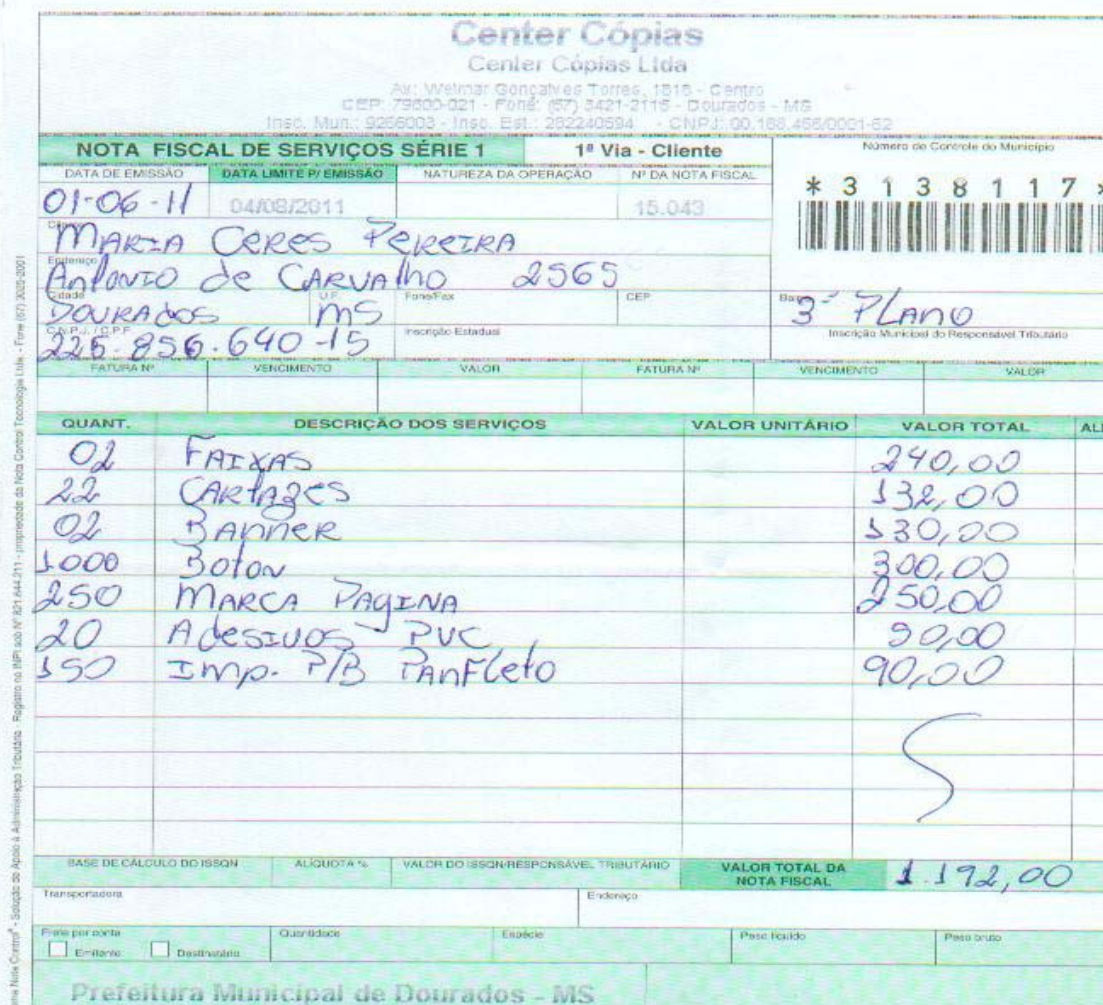 Center Cópias
Center Cópias Ltda
Av: Weimar Gonçalves Torres, 1818 - Centro
CEP: 79800-021 - Fone: (67) 3421-2115 - Dourados - MS
Insc. Mun.: 9266003 - Insc. Est.: 282240594 - CNPJ: 00.188.466/0001-62
NOTA FISCAL DE SERVIÇOS SÉRIE 1 1ª Via - Cliente
Número de Controle do Município
DATA DE EMISSÃO DATA LIMITE P/ EMISSÃO NATUREZA DA OPERAÇÃO Nº DA NOTA FISCAL
* 3 1 3 8 1 1 7 *
01-06-11 04/08/2011 15.043
Cliente
MARIA CERES PEREIRA
Endereço
Antonio de CARVAlho 2565
Cidade U.F. Fone/Fax CEP Bairro
DOURADOS MS 3º PLANO
C.N.P.J. / C.P.F. Inscrição Estadual Inscrição Municipal do Responsável Tributário
225.856.640-15
FATURA Nº VENCIMENTO VALOR FATURA Nº VENCIMENTO VALOR
QUANT. DESCRIÇÃO DOS SERVIÇOS VALOR UNITÁRIO VALOR TOTAL
02 FAIXAS 240,00
22 CARTAZES 132,00
02 BANNER 130,00
1000 Boton 300,00
250 MARCA PAGINA 250,00
20 Adesivos PVC 50,00
150 Imp. P/B PANFLeto 90,00
BASE DE CÁLCULO DO ISSQN ALÍQUOTA % VALOR DO ISSQN/RESPONSÁVEL TRIBUTÁRIO VALOR TOTAL DA NOTA FISCAL 1.192,00
Transportadora Endereço
Frete por conta Quantidade Espécie Peso líquido Peso bruto
Emitente Destinatário
Prefeitura Municipal de Dourados - MS
Note Control® - Solução de Apoio à Administração Tributária - Registro no INPI sob Nº 821.644.211 - propriedade da Nota Control Tecnologia Ltda. - Fone (67) 3025-2001